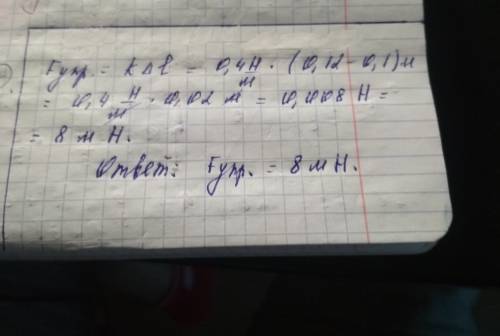 Fупр. = kΔl = 0,4 Н/м · (0,12-0,1)м
= 0,4 Н/м · 0,02 м = 0,008 Н =
= 8 м Н.
Ответ: Fупр. = 8 мН.